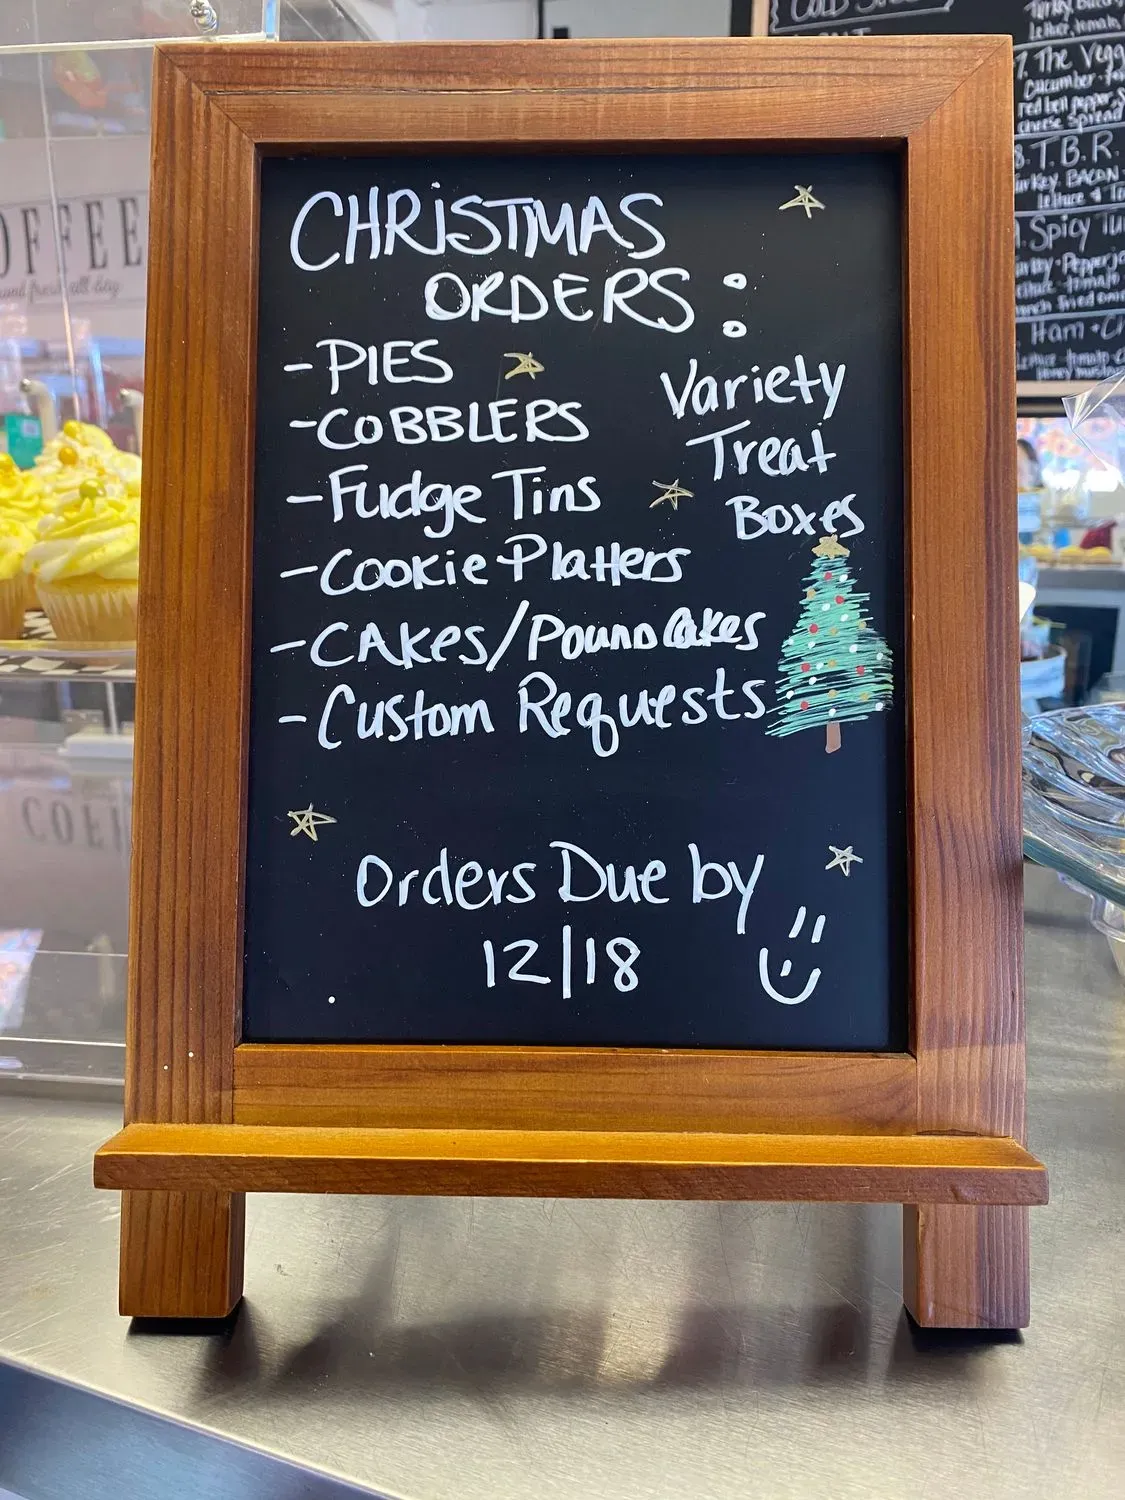 CHRISTMAS
ORDERS:
- PIES
- COBBLERS
- Fudge Tins
- Cookie Platters
- CAKES/POUND Cakes
- Custom Requests
Variety
Treat
Boxes
Orders Due by
12/18
OFFEE
all day
COFF
7. The Vegg
Cucumber
red bell pepper
cheese spread
8. T.B.R.
Turkey, BACON
Lettuce
Spicy Tu
Pepperj
tomato
Fried oni
Ham + Ch
Lettuce tomato
Honey mustard